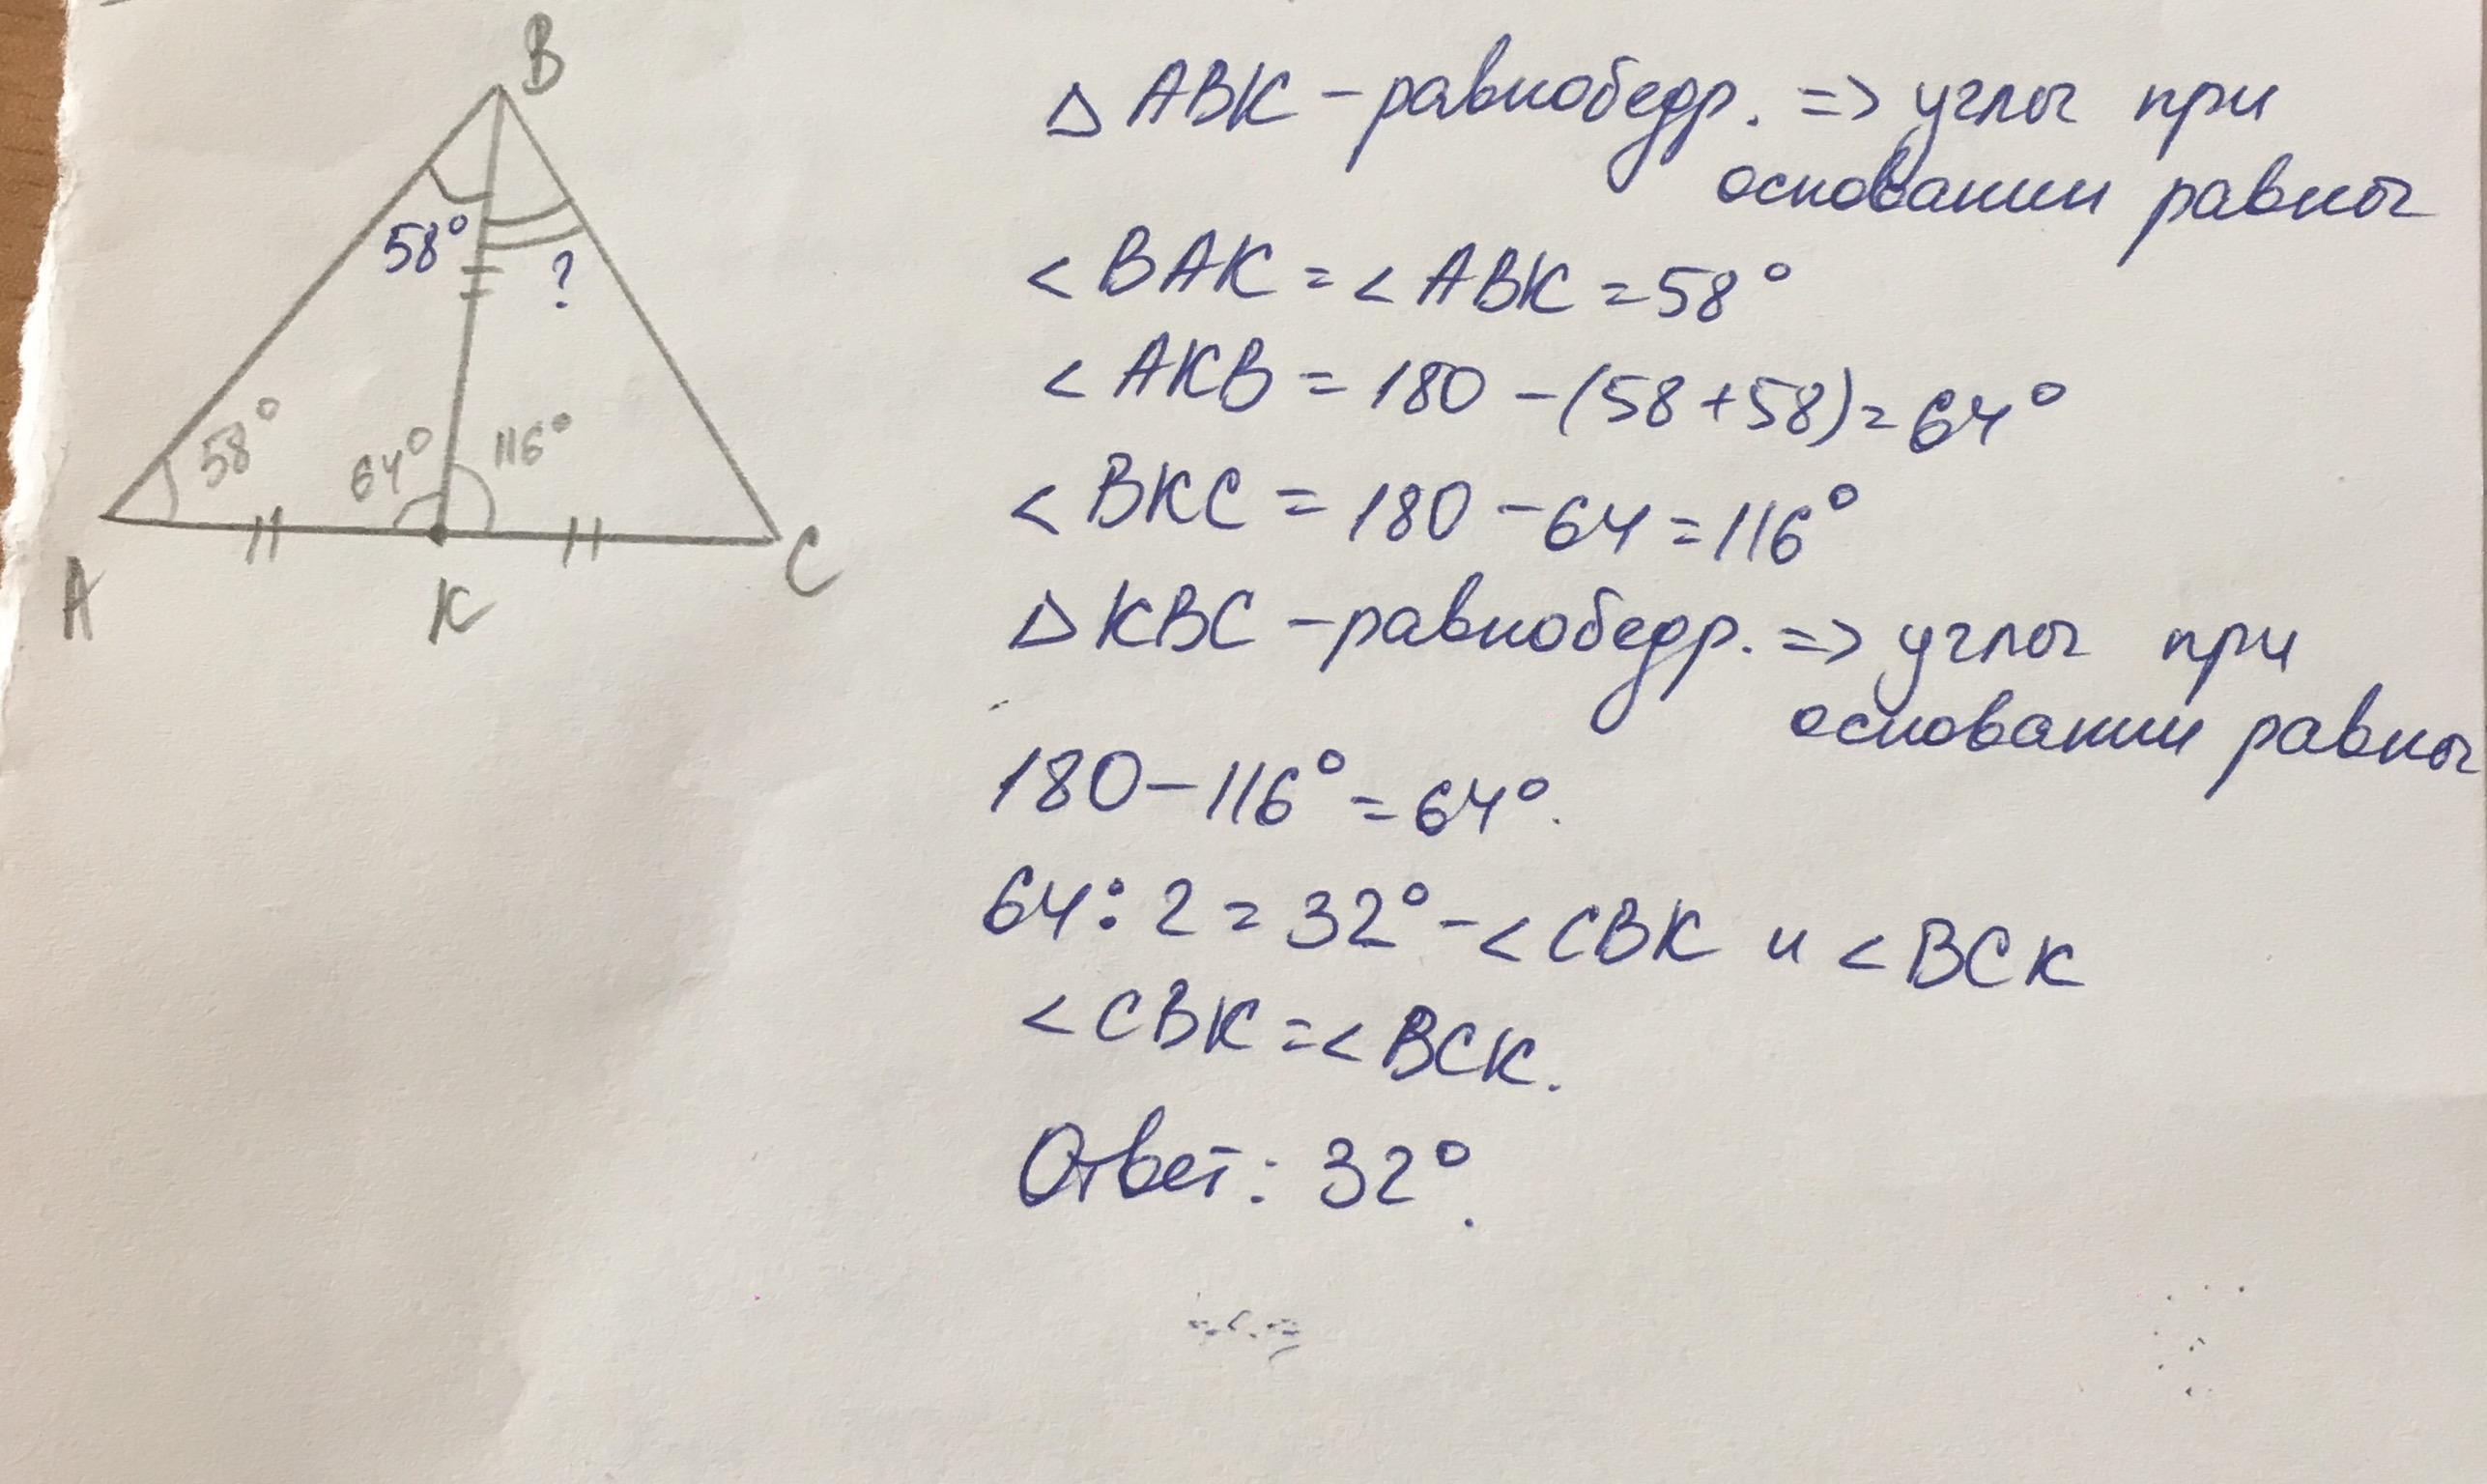 B
58°
?
58°
64°
116°
A
K
C
△ ABK – равнобедр. => углы при
основании равны
< BAK = < ABK = 58°
< AKB = 180 – (58+58) = 64°
< BKC = 180 – 64 = 116°
△ KBC – равнобедр. => углы при
основании равны
180 – 116° = 64°.
64 : 2 = 32° – < CBK и < BCK
< CBK = < BCK.
Ответ: 32°.